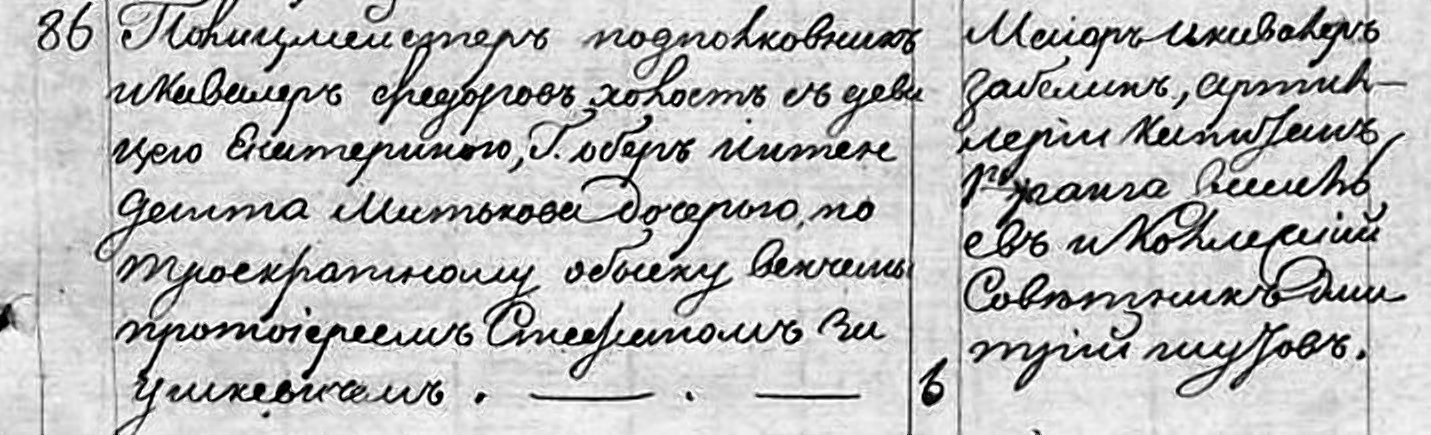 86 Полицмейстеръ подполковникъ
и кавалеръ Федоровъ холостъ съ деви
цею Екатериною, Г. оберъ интен
дента Митькова дочерью, по
троекратному обыску венчаны
протоіереемъ Стефаномъ За
ушкевичемъ . — . —
6
Маіоръ и кавалеръ
Забелинъ, артил-
леріи капитанъ
1го ранга
евъ и Коллерскій
Советникъ Дми
трій